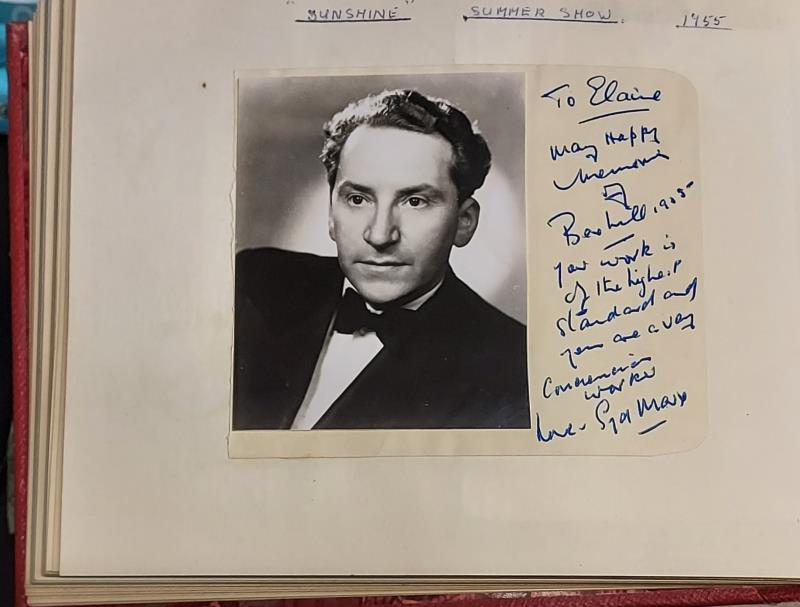 "SUNSHINE" SUMMER SHOW. 1955
To Elaine
May Happy
Memories
of
Bexhill 1955
your work is
of the highest
standard and
you are a very
Conscientious
worker
Love - Syd Marx